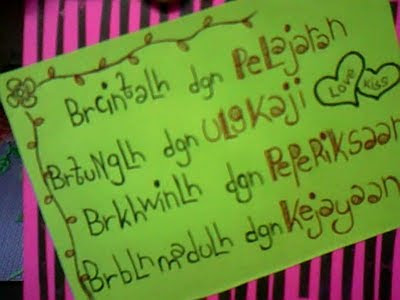 Brcintalh dgn PeLajaran
BrtuNglh dgn ULgKaji
Love Kiss
BrkhwinLh dgn PePeRiKsaan
BrbLnmadulh dgn KeJaYaan